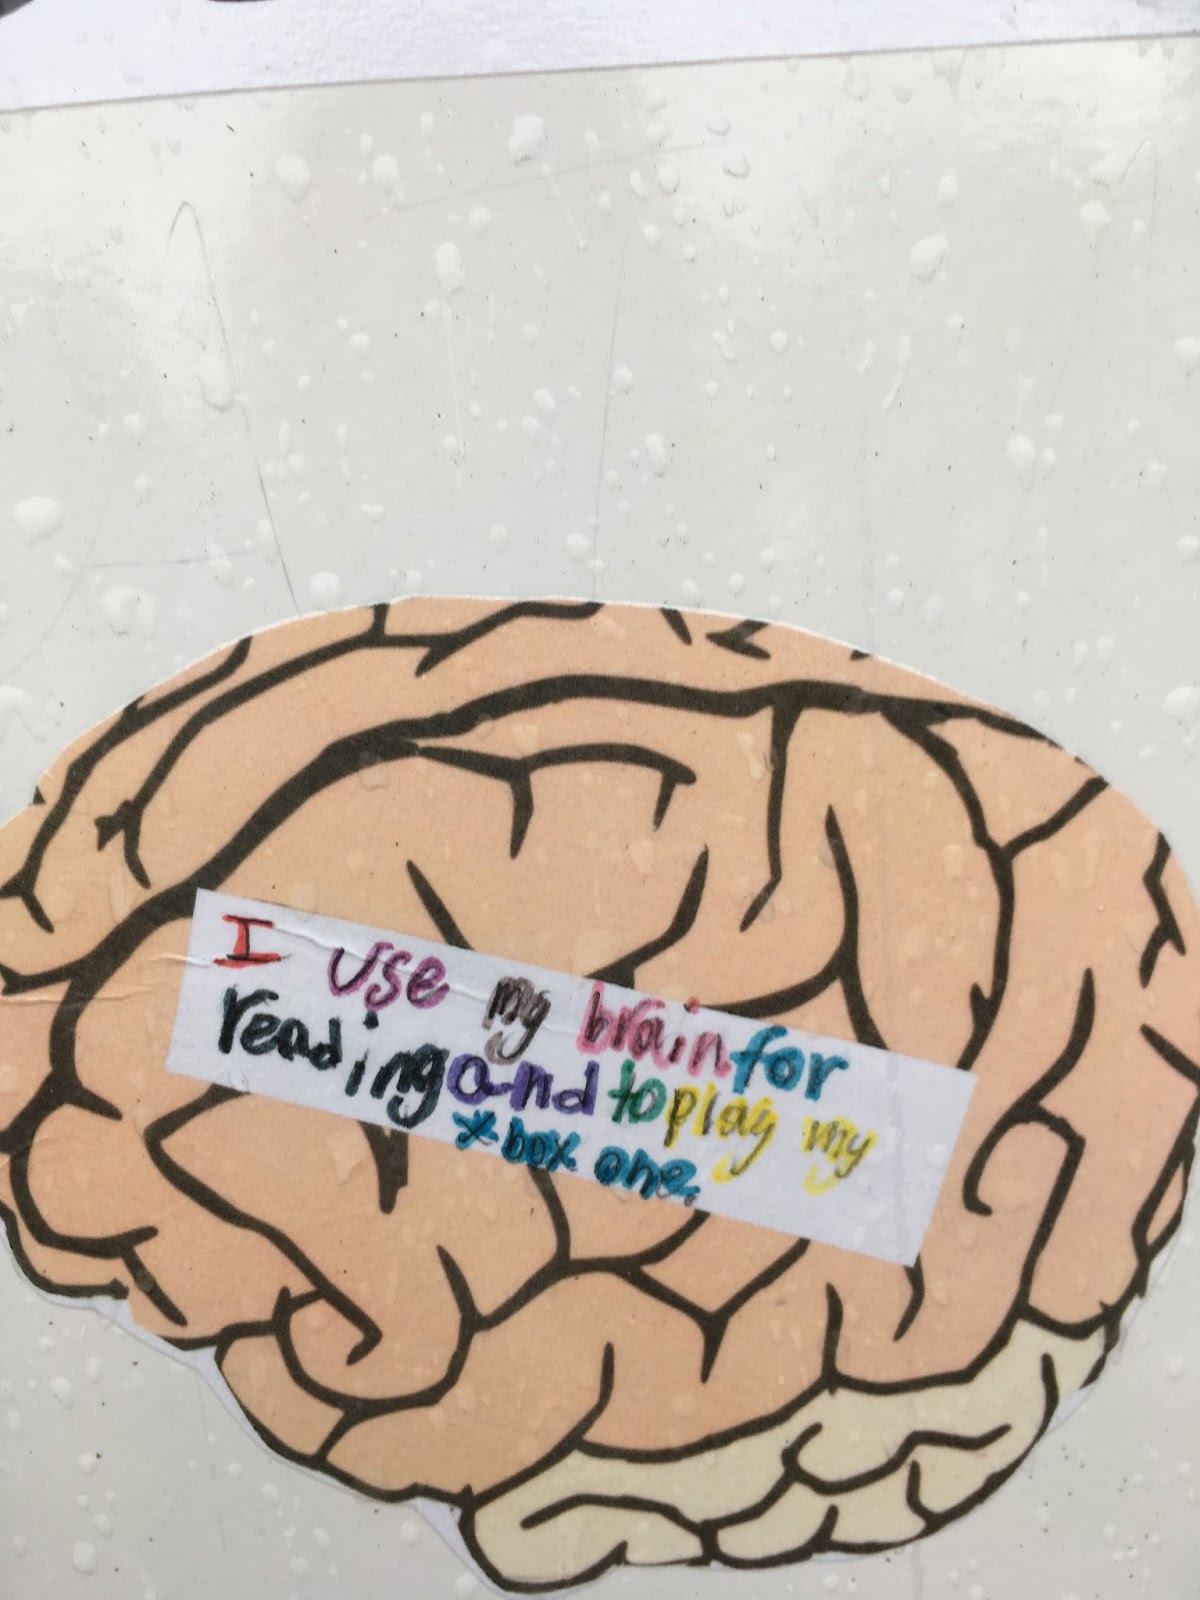 I use my brain for
reading and to play my
x box one.